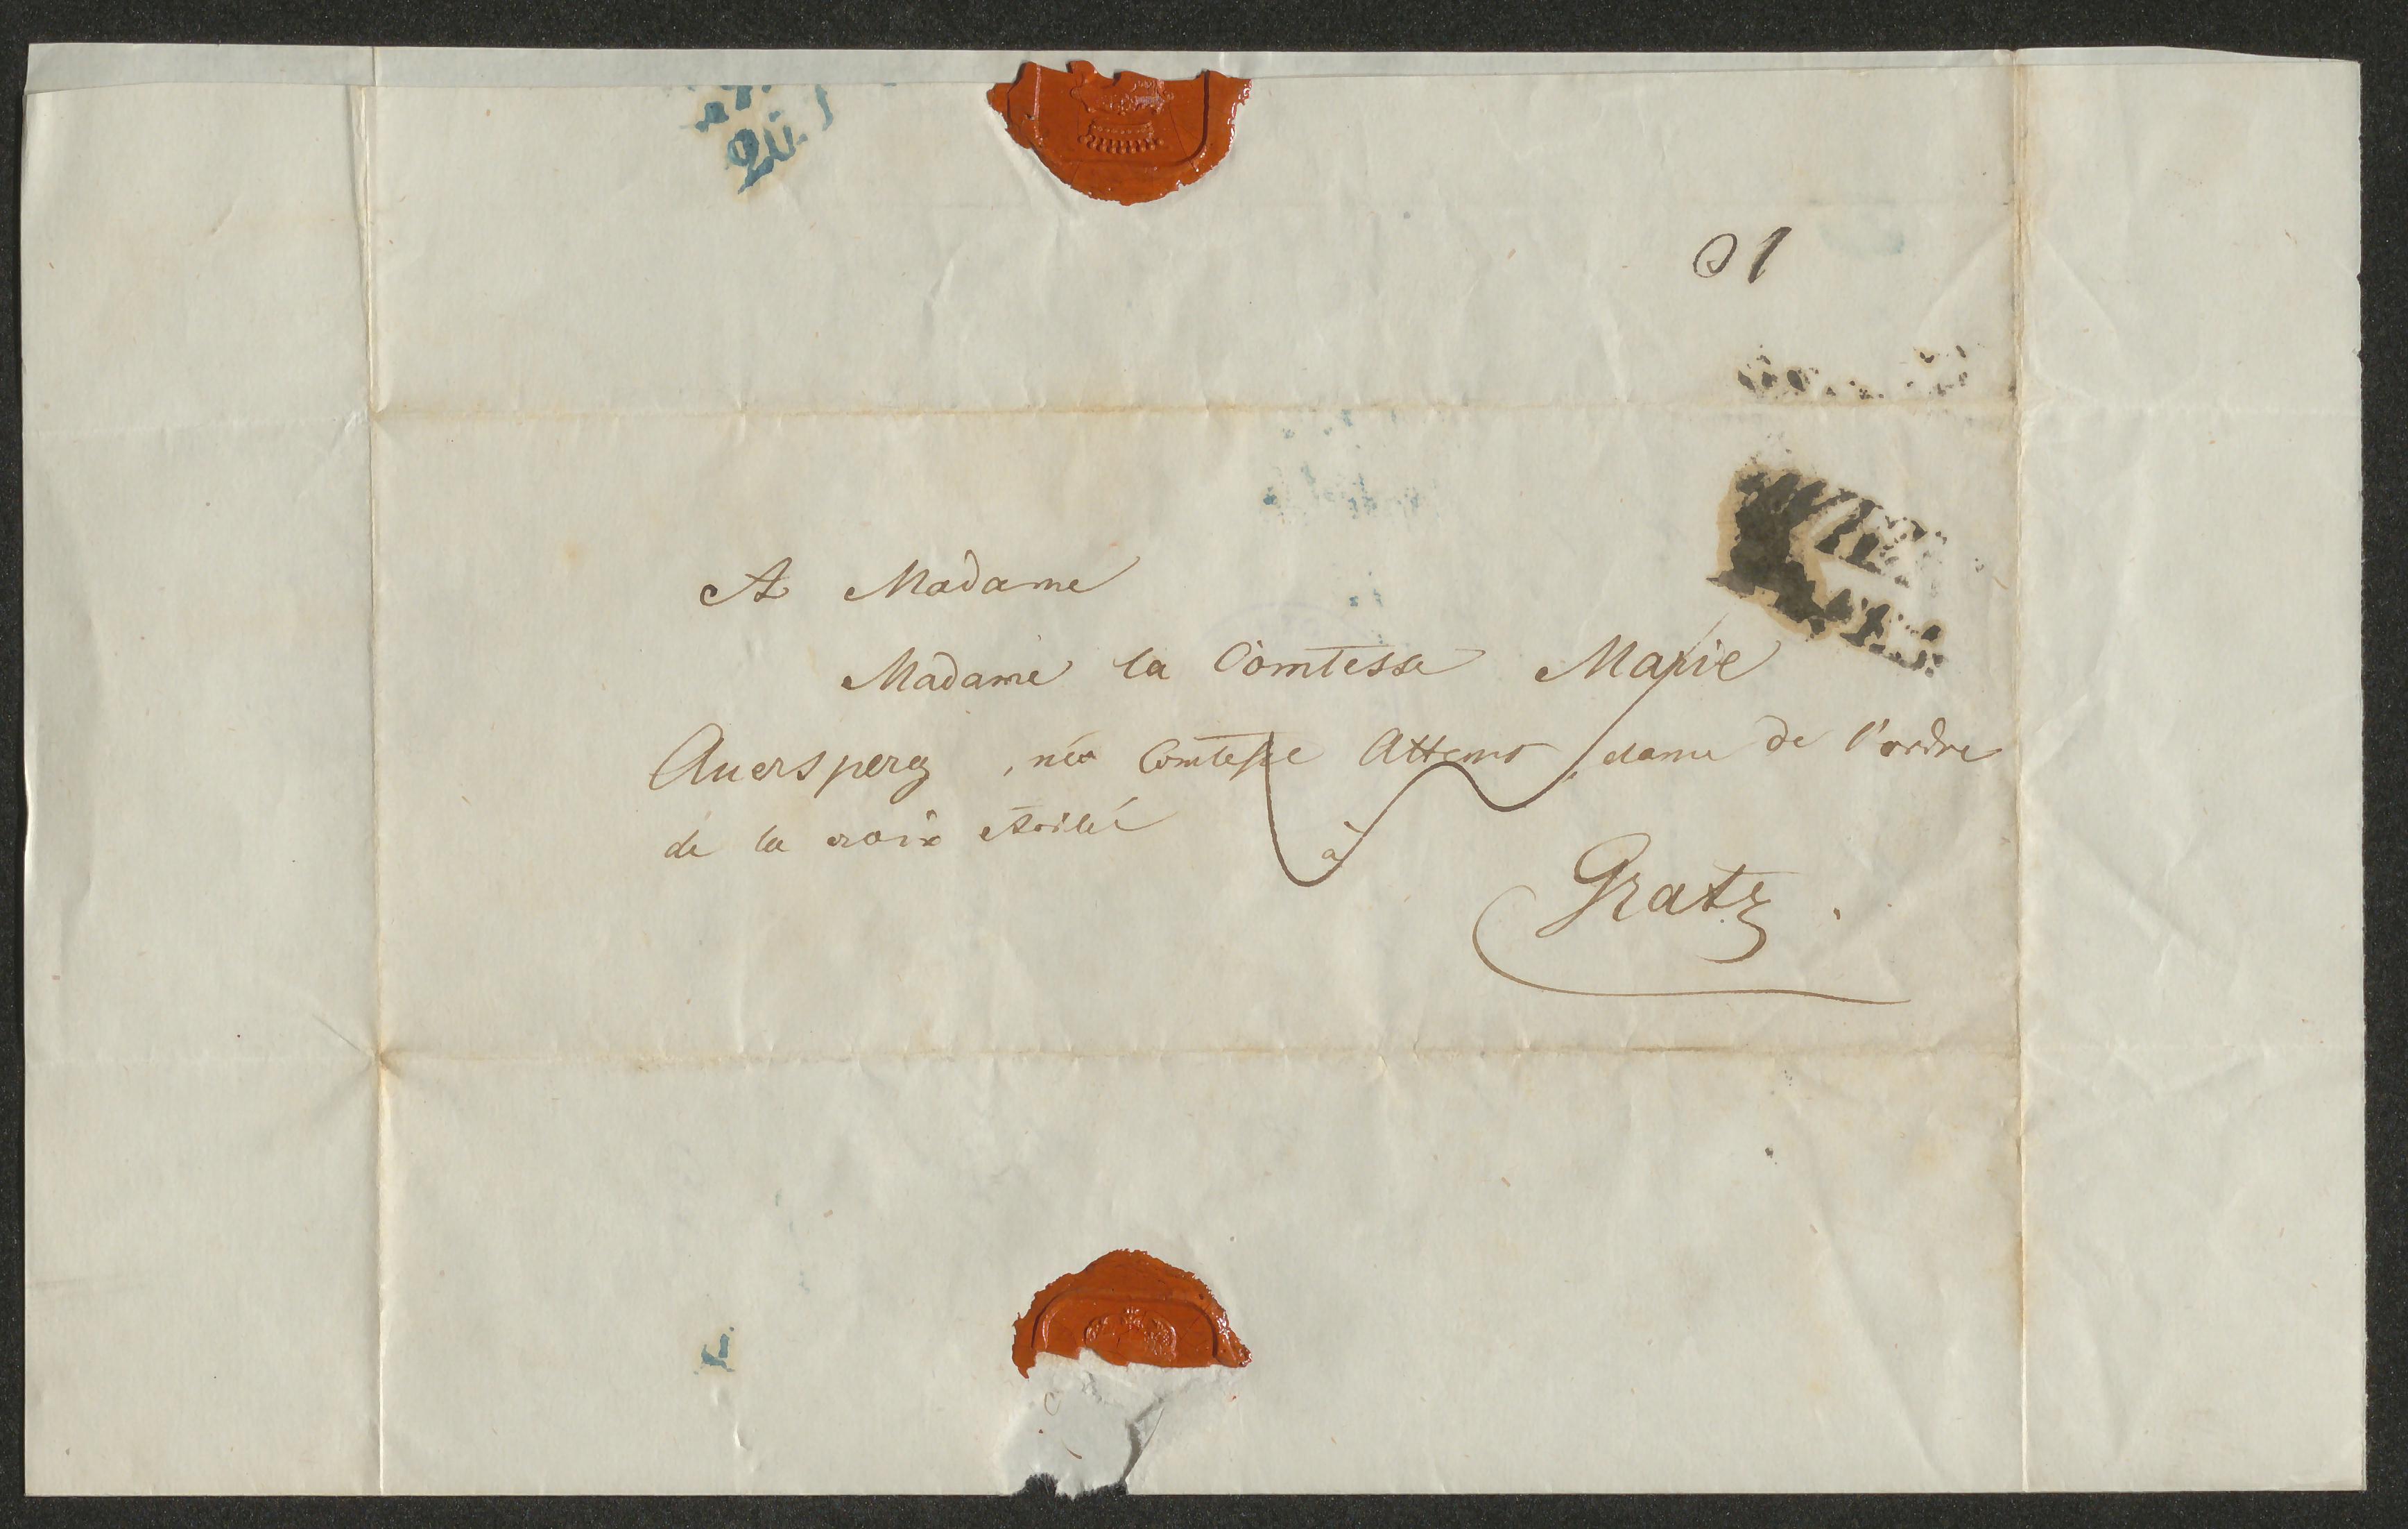 01
WIEN
A Madame
Madame la Comtesse Marie
Auersperg, née Comtesse Attems, dame de l'ordre
de la croix étoilée
à
Gratz.